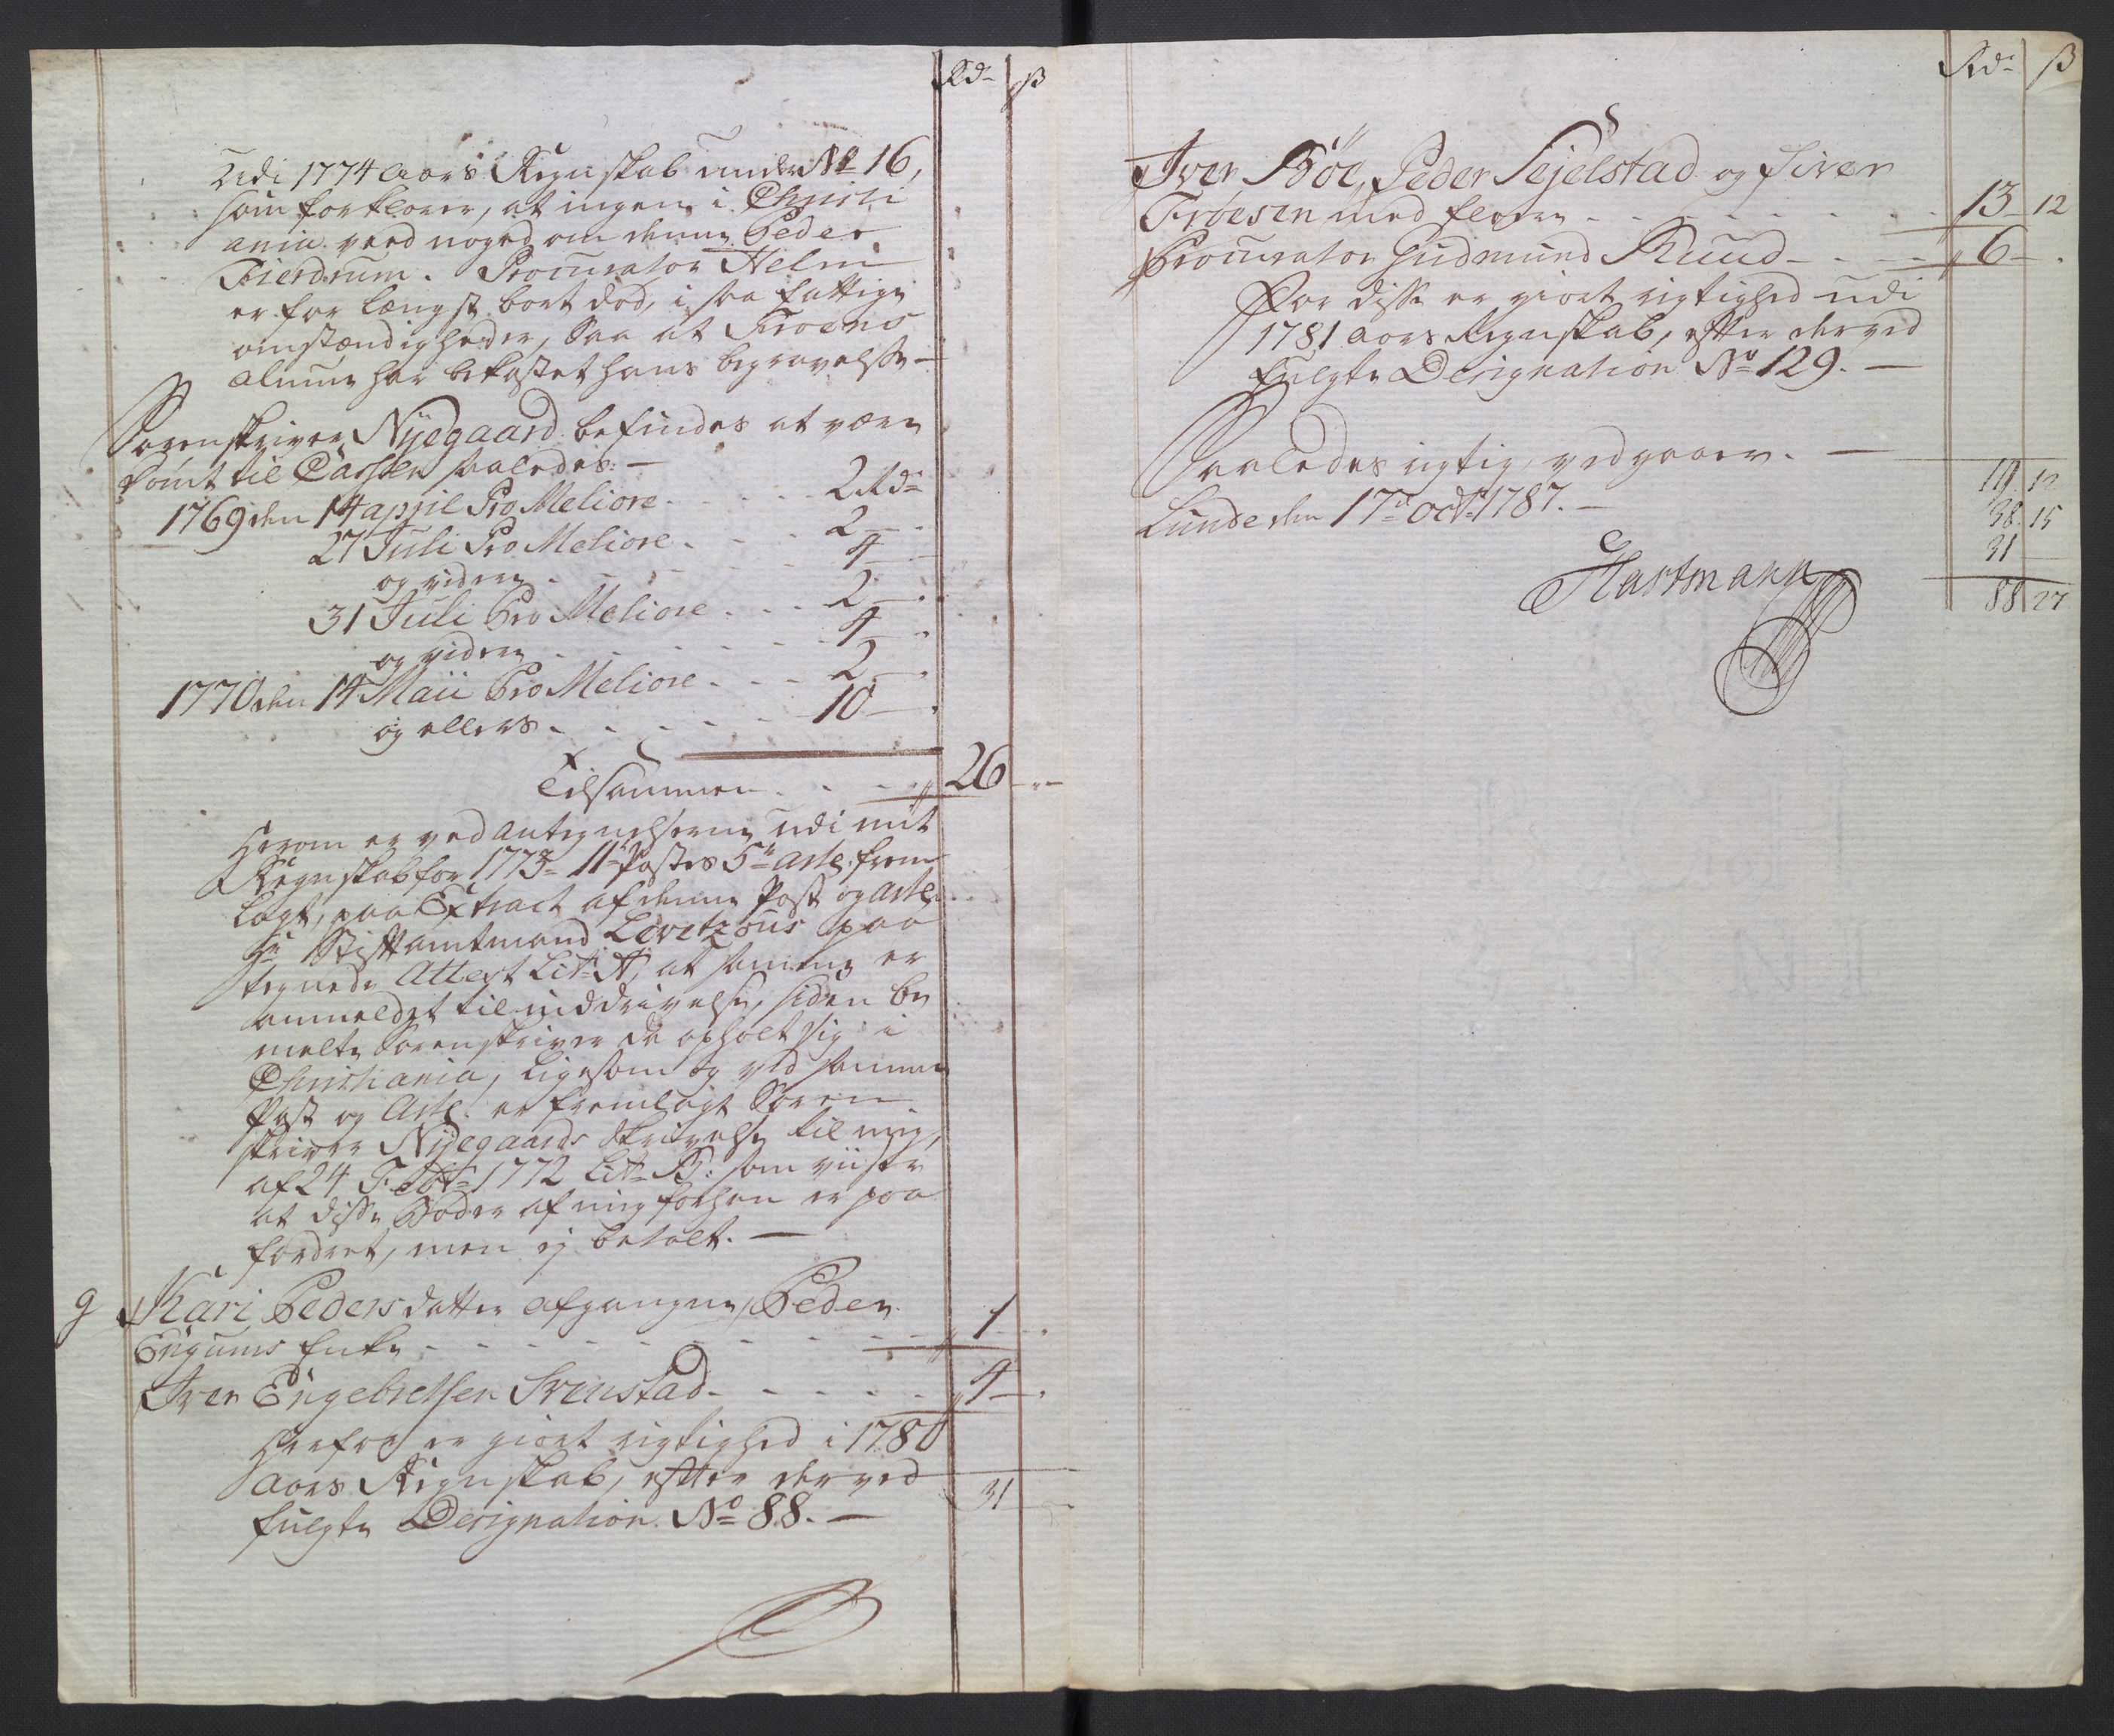 Rd ß
Udi 1774 Aars Regnskab under No 16,
som forklarer, at ingen i Christi
ania veed noged om denne Peder
Fierdrum. Procurator Helm
er for længst bort død, i saa fattige
omstændigheder, saa at Froens
Almue har bekostet hans begravelse –
Sorenskriver Nyegaard befindes at være
dømt til Cassen saaledes: –
1769 den 14 april Pro Meliore - - - 2 Rd
27 Juli Pro Meliore - - - 2 –
og videre - - - 4 –
31 Juli Pro Meliore - - - 2 –
og videre - - - 4 –
1770 den 14 Maii Pro Meliore - - - 2 –
og ellers - - - 10 –
Tilsammen - - - 26 –
Herom er ved Antegnelserne udi mit
Regnskab for 1773 11te Postes 5te Artl: frem
lagt, paa Extract af denne Post og Artl:
Hr Stiftamtmand Levetzous paa
tegnede Attest Litr A, at samme er
anmeldet til inddrivelse, siden be
melte Sorenskriver da opholt sig i
Christiania, ligesom og ved samme
Post og Artl: er fremlagt Soren
skriver Nyegaards Skrivelse til mig,
af 24 Febr 1772 Litr B: som viiser
at disse Bøder af mig forhen er paa
fordret, men ej betalt. –
9 Kari Pedersdatter afgangne Peder
Engums Enke - - - 1 –
Iver Engebretsen Svenstad - - - 4 –
Herfor er giort rigtighed i 1780
Aars Regnskab, efter derved
fulgte Designation No 88. –
31
Rd ß
Iver Böe, Peder Sejelstad og Siver
Froesen med fleere - - - 13 – 12
Procurator Gudmund Ruud - - - 6 –
For disse er giort rigtighed udi
1781 Aars Regnskab, efter derved
fulgte Designation No 129. –
Saaledes rigtig vedgaaer. –
19 12
Lunde den 17d octr 1787. –
38 15
31
Hartmann
88 27